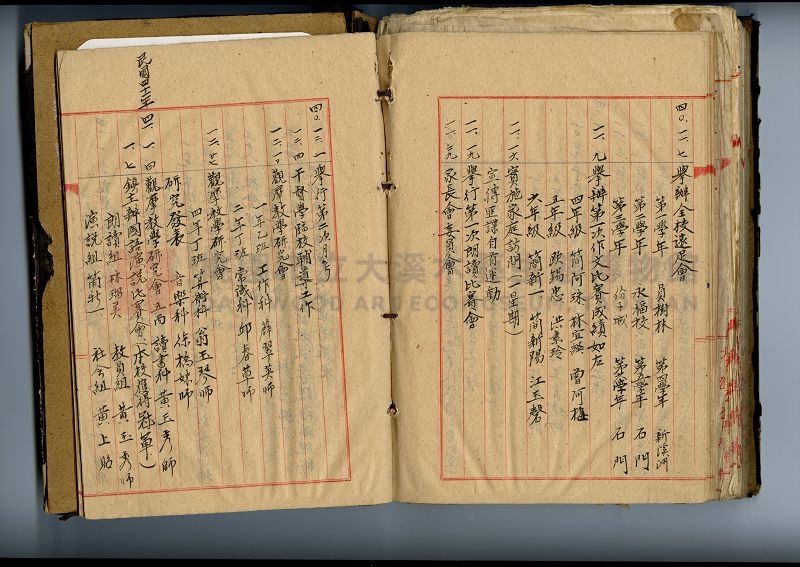 四〇、一一、七 舉辦全校遠足會
第一學年 員樹林 第四學年 新溪洲
第二學年 永福校 第五學年 石門
第三學年 第六學年 石門
一一、九 舉辦第一次作文比賽成績如左
四年級 簡阿珠 林宜 曾阿梅
五年級 洪素玲
六年級 簡新 簡新陽 江玉馨
一一、一六 實施家庭訪問(一星期)
宣傳匪諜自首運動
一一、一九 舉行第一次朗讀比賽會
一一、二九 家長會委員會
四〇、一二、一 舉行第二次月考
一二、四 督學臨校輔導工作
一二、一〇 觀摩教學研究會
一年乙班 工作科 薛翠英師
二年丁班 常識科 邱春草師
一二、二七 觀摩教學研究會
四年丁班 算術科 翁玉琴師
研究發表 音樂科 徐梅妹師
民國四十一年 四一、一、四 觀摩教學研究會 五丙 讀書科 黃玉秀師
一、七 鎮主辦國語演說比賽會(本校獲得冠軍)
朗讀組 林瑞美 教員組 黃玉秀師
演說組 簡牡 社會組 黃上
國立大溪木 博物館
DAXI WOOD ART ECOMUSEUM TAOYUAN